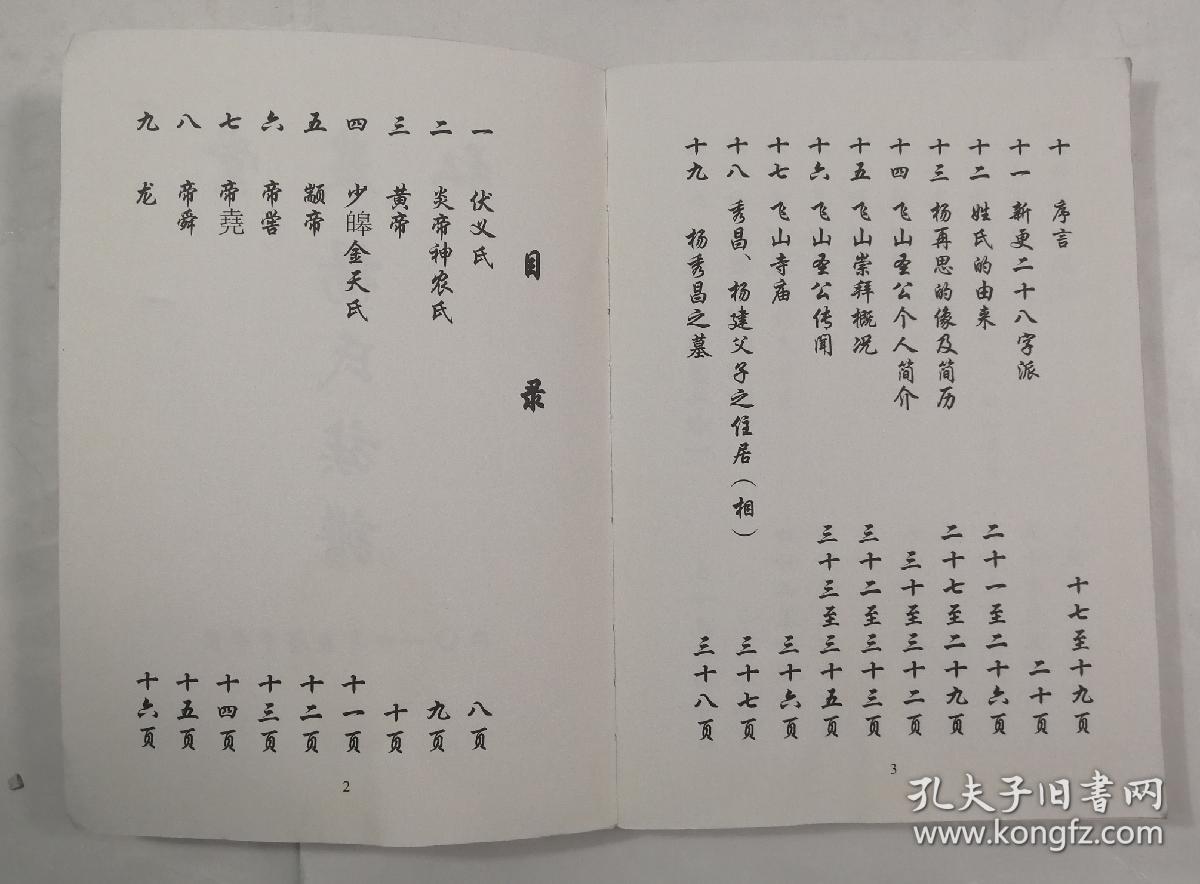 目录
一 伏义氏 八页
二 炎帝神农氏 九页
三 黄帝 十页
四 少皞金天氏 十一页
五 颛帝 十二页
六 帝喾 十三页
七 帝堯 十四页
八 帝舜 十五页
九 龙 十六页
2
十 序言 十七至十九页
十一 新更二十八字派 二十页
十二 姓氏的由来 二十一至二十六页
十三 杨再思的像及简历 二十七至二十九页
十四 飞山圣公个人简介 三十至三十二页
十五 飞山崇拜概况 三十二至三十三页
十六 飞山圣公传闻 三十三至三十五页
十七 飞山寺庙 三十六页
十八 秀昌、杨建父子之住居(相) 三十七页
十九 杨秀昌之墓 三十八页
3
孔夫子旧書网
www.kongfz.com